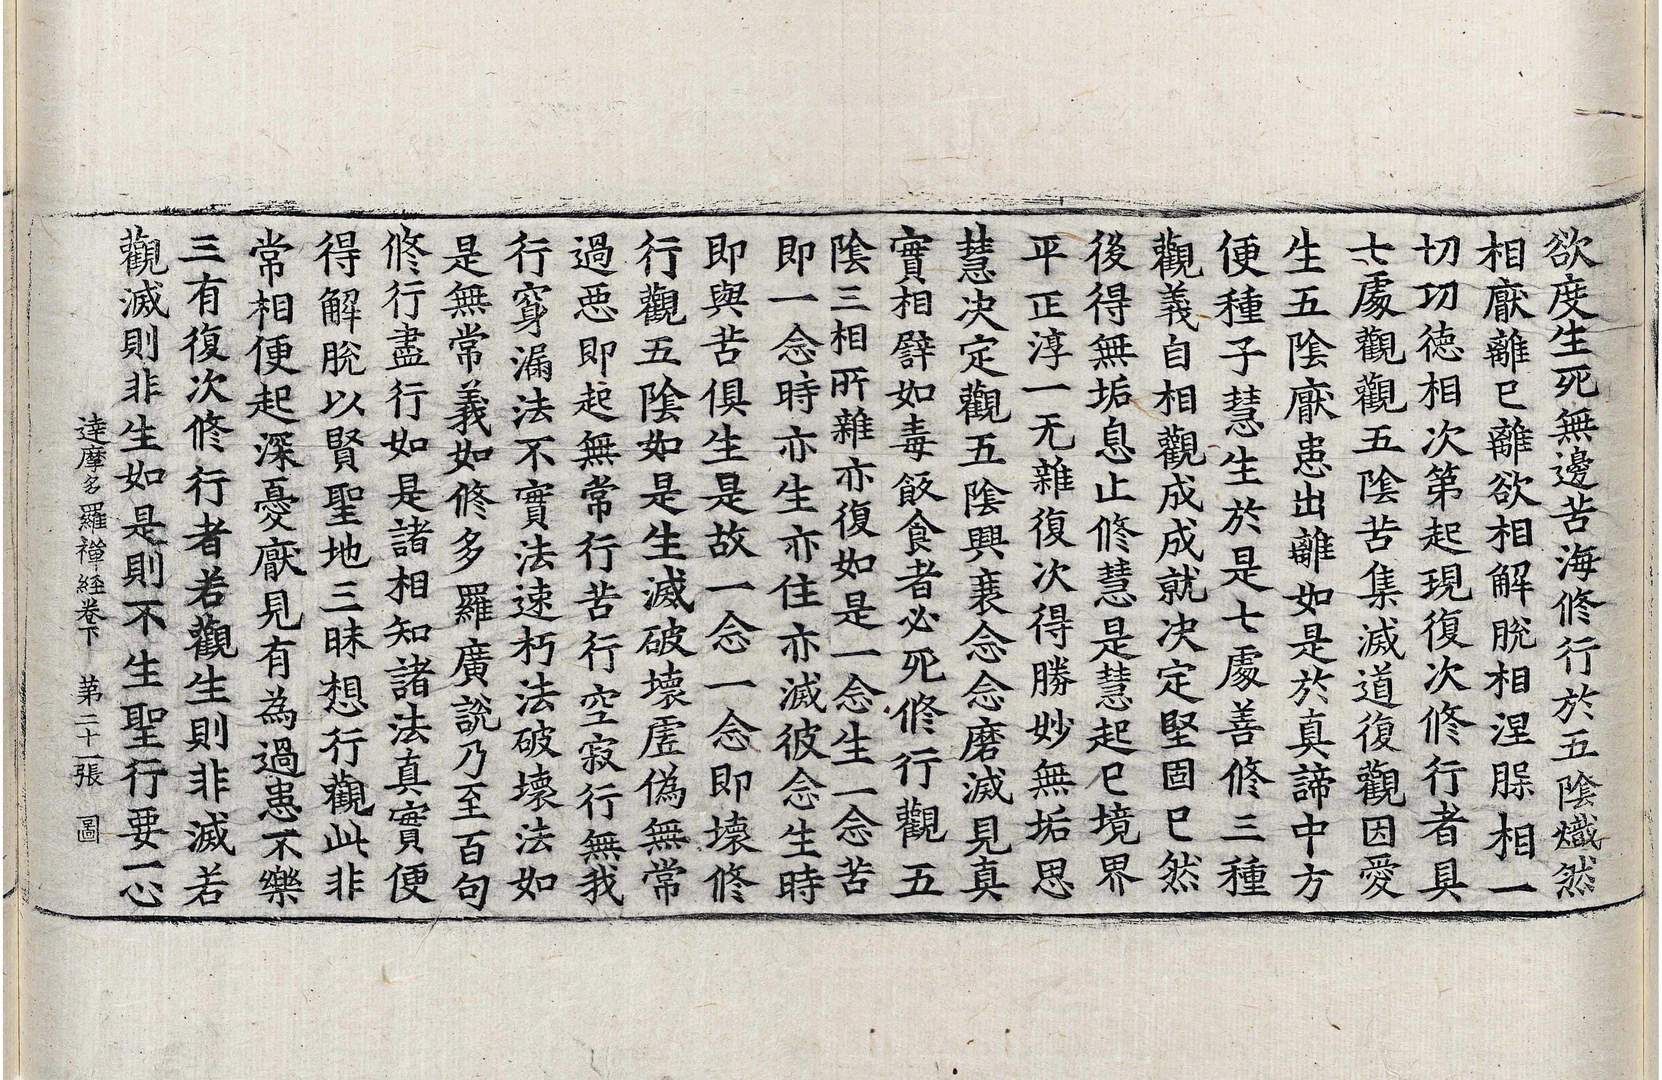 欲度生死無邊苦海修行於五陰熾然
相厭離已離欲相解脫相涅槃相一
切功德相次第起現復次修行者具
七處觀觀五陰苦集滅道復觀因愛
生五陰厭患出離如是於真諦中方
便種子慧生於是七處善修三種
觀義自相觀成成就決定堅固已然
後得無垢息止修慧是慧起已境界
平正淳一无雜復次得勝妙無垢思
慧决定觀五陰興衰念念磨滅見真
實相譬如毒飯食者必死修行觀五
陰三相所雜亦復如是一念生一念苦
即一念時亦生亦住亦滅彼念生時
即與苦俱生是故一念一念即壞修
行觀五陰如是生滅破壞虛偽無常
過惡即起無常行苦行空寂行無我
行窮漏法不實法速朽法破壞法如
是無常義如修多羅廣說乃至百句
修行盡行如是諸相知諸法真實便
得解脫以賢聖地三昧想行觀此非
常相便起深憂厭見有為過患不樂
三有復次修行者若觀生則非滅若
觀滅則非生如是則不生聖行要一心
達摩多羅禪経卷下 第二十一張 圖